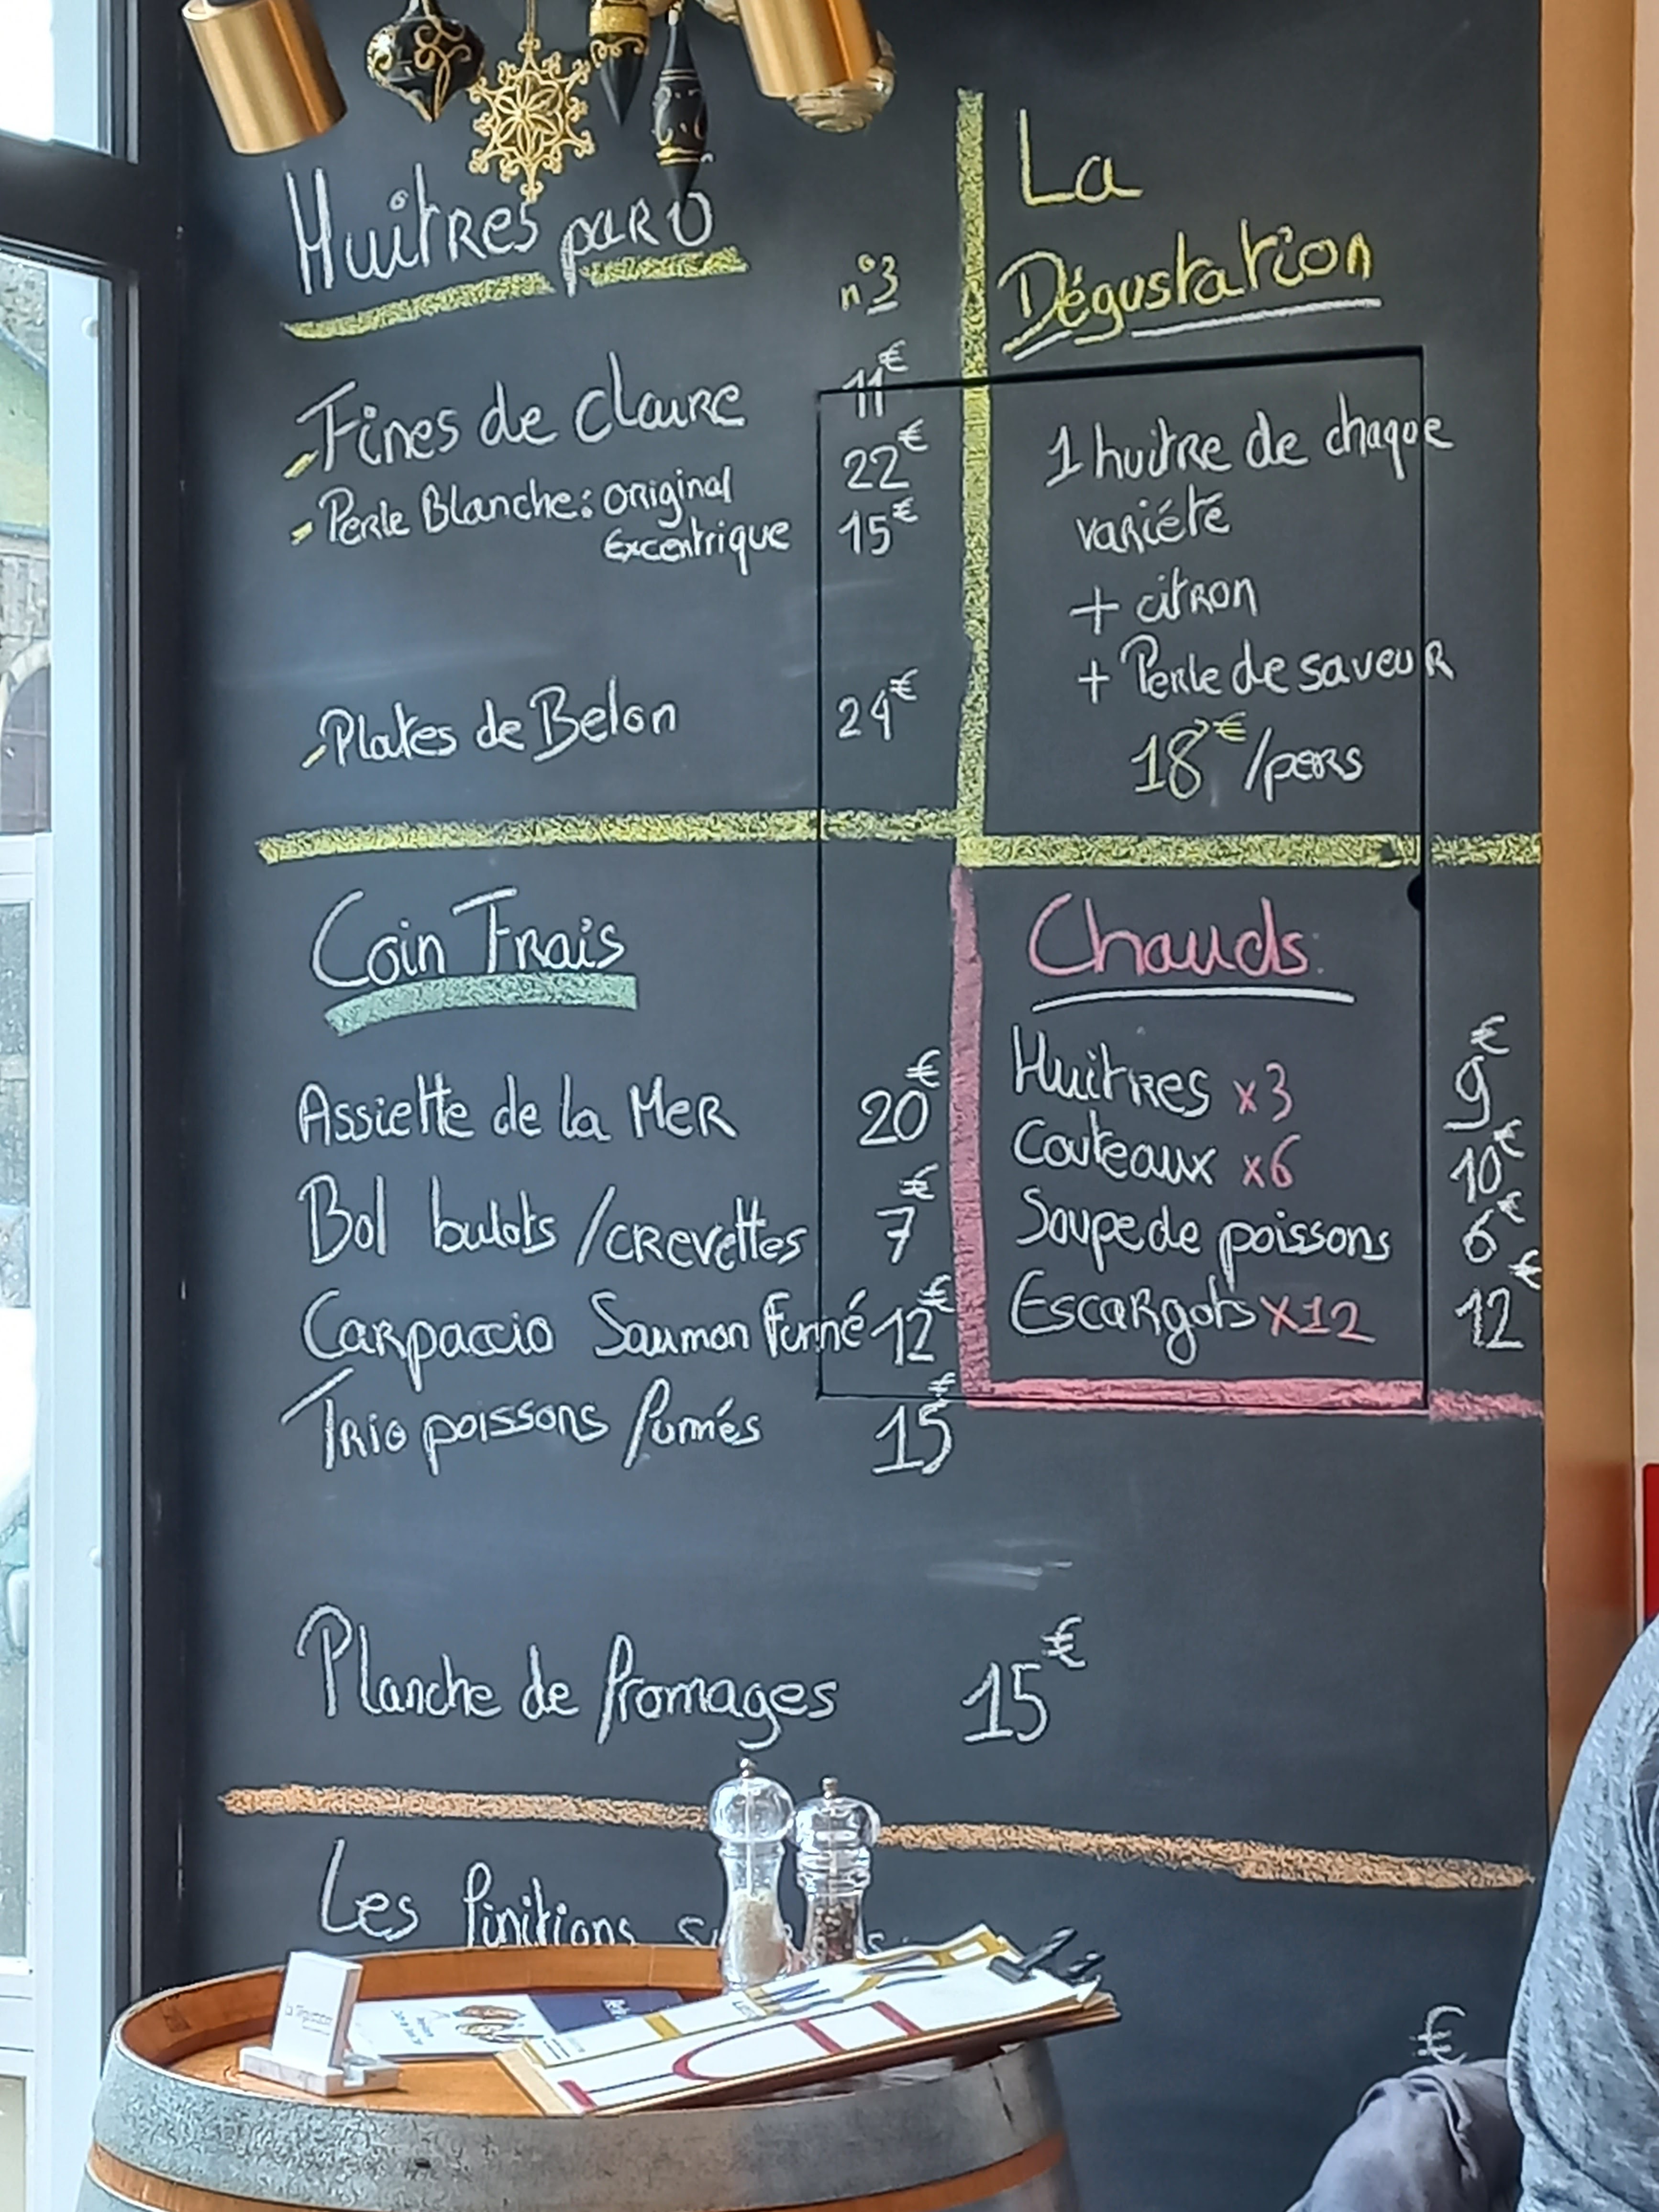 Huîtres par 6
n°3
Fines de claire 11€
Perle Blanche: Original 22€
Excentrique 15€
Plates de Belon 24€
La
Dégustation
1 huitre de chaque
variété
+ citron
+ Perle de saveur
18€/pers
Coin Frais
Assiette de la Mer 20€
Bol bulots / crevettes 7€
Carpaccio Saumon Fumé 12€
Trio poissons fumés 15€
Chauds:
Huitres x3 9€
Couteaux x6 10€
Soupe de poissons 6€
Escargots x12 12€
Planche de fromages 15€
Les finitions
€